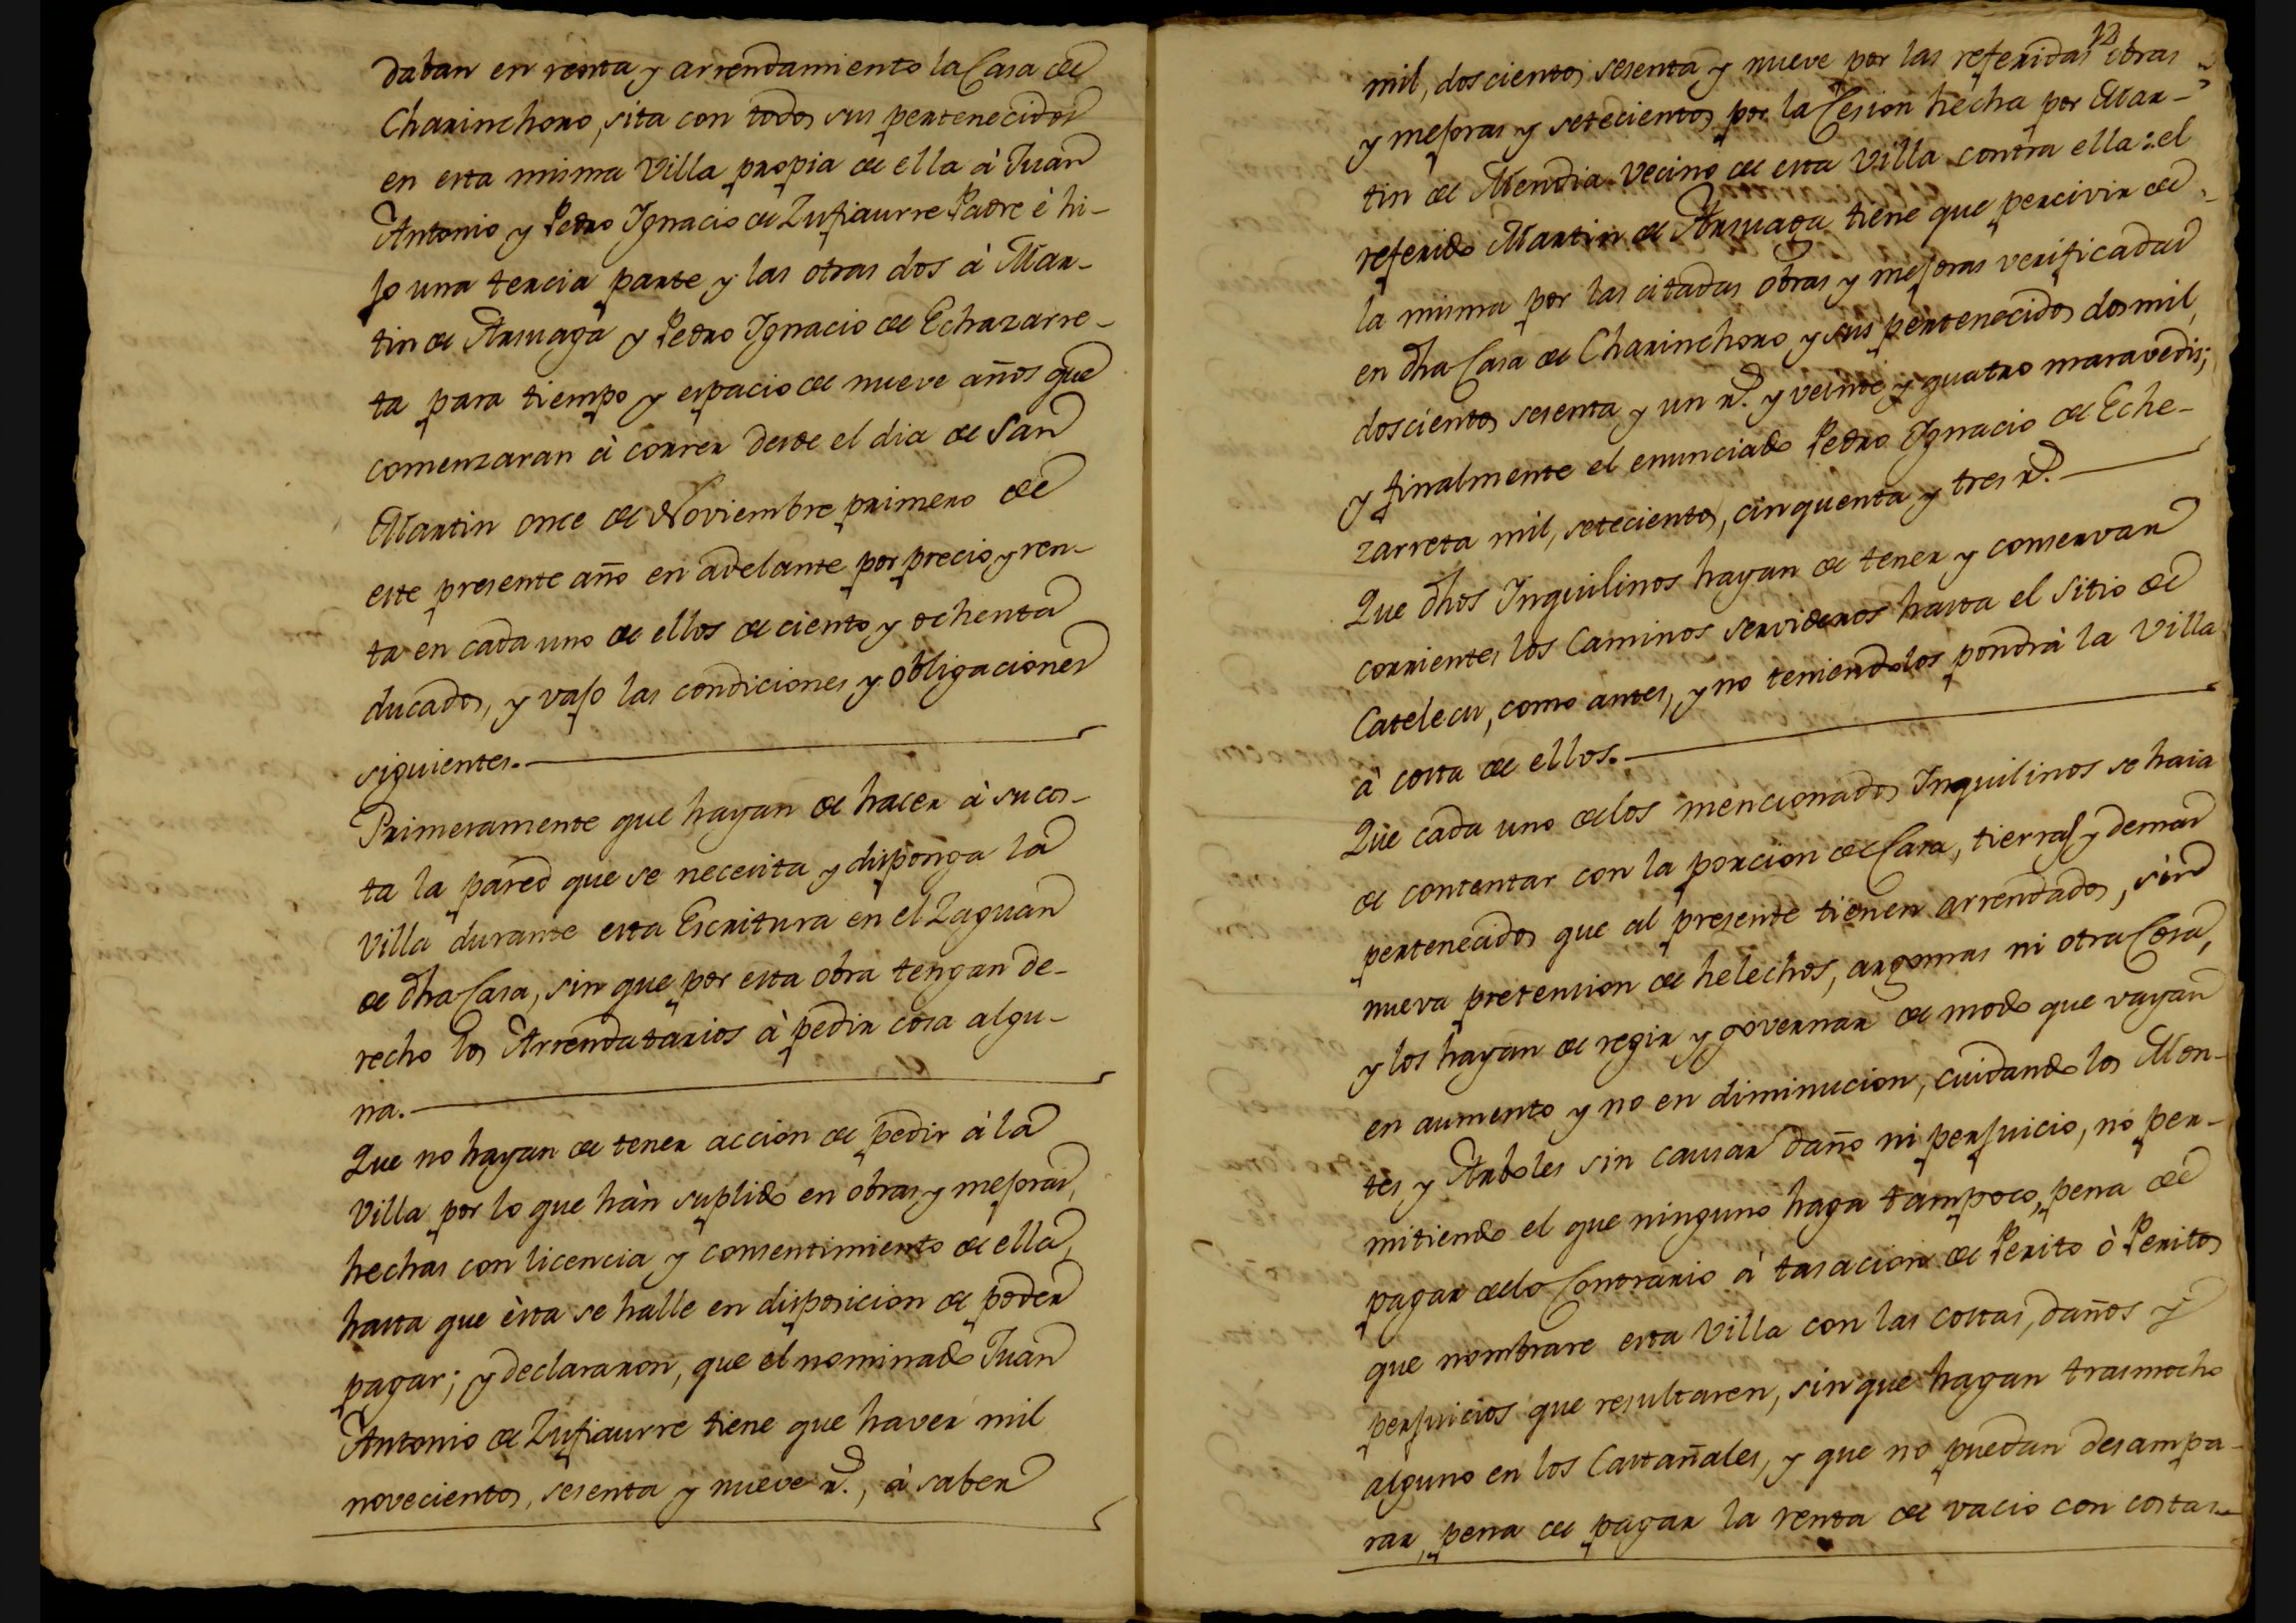 daban en renta y arrendamiento la Casa de
Charinchoro, sita con todos sus pertenecidos
en esta misma Villa propia de ella à Juan
Antonio y Pedro Ignacio de Zufiaurre Padre è hi-
jo una tercia parte y las otras dos à Mar-
tin de Arsuaga y Pedro Ignacio de Echazarre-
ta para tiempo y espacio de nueve años que
comenzaran à correr desde el dia de San
Martin once de Noviembre primero de
este presente año en adelante por precio y ren-
ta en cada uno de ellos de ciento y ochenta
ducados, y vajo las condiciones y obligaciones
siguientes.
Primeramente que hayan de hacer à su cos-
ta la pared que se necesita y disponga la
Villa durante esta Escritura en el Zaguan
de dha Casa, sin que por esta obra tengan de-
recho los Arrendatarios à pedir cosa algu-
na.
Que no hayan de tener accion de pedir à la
Villa por lo que hàn suplido en obras y mejoras,
hechas con licencia y consentimiento de ella,
hasta que èsta se halle en disposicion de poder
pagar; y declararon, que el nominado Juan
Antonio de Zufiaurre tiene que haver mil
novecientos, sesenta y nueve r.ˢ, à saber
12
mil, doscientos sesenta y nueve por las referidas obras
y mejoras y setecientos por la Cesion hecha por Mar-
tin de Mendia Vecino de esta Villa contra ella: el
referido Martin de Arsuaga tiene que percivir de
la misma por las citadas obras y mejoras verificadas
en dha Casa de Charinchoro y sus pertenecidos dos mil,
doscientos sesenta y un r.ˢ y veinte y quatro maravedis;
y finalmente el enunciado Pedro Ignacio de Eche-
zarreta mil, setecientos, cinquenta y tres r.ˢ
Que dhos Inquilinos hayan de tener y conservar
corrientes los Caminos servideros hasta el Sitio de
Catelecu, como antes, y no teniendolos pondrà la Villa
à costa de ellos.
Que cada uno de los mencionados Inquilinos se haia
de contentar con la porcion de Casa, tierras y demas
pertenecidos que al presente tienen arrendados, sin
nueva pretension de helechos, argomas ni otra Cosa,
y los hayan de regir y governar de modo que vayan
en aumento y no en diminucion, cuidando los Mon-
tes y Arboles sin causar daño ni perjuicio, no per-
mitiendo el que ninguno haga tampoco, pena de
pagar de lo Contrario à tasacion de Perito ò Peritos
que nombrare esta Villa con las costas, daños y
perjuicios que resultaren, sin que hagan trasmocho
alguno en los Castañales, y que no puedan desampa-
rar, pena de pagar la renta de vacio con costas